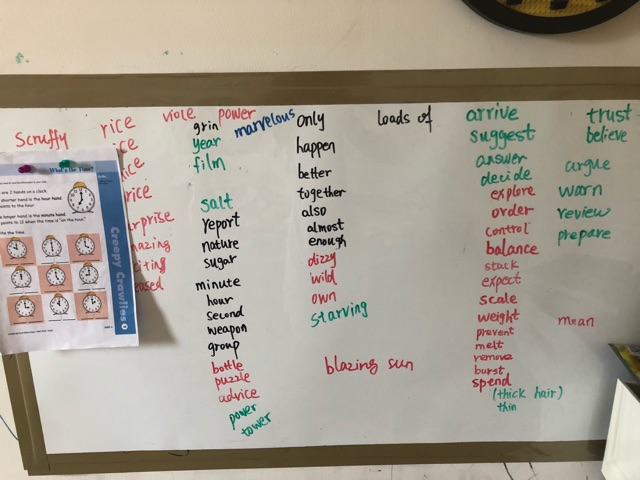 Scruffy
rice
viole power
marvelous
ice
ice
rice
rprise
mazing
citing
eased
What's the Time?
are 2 hands on a clock.
shorter hand is the hour hand
longer hand is the minute hand.
points to 12 when the time is "on the hour."
the time.
Creepy Crawlies
grin
year
film
salt
report
nature
sugar
minute
hour
second
weapon
group
bottle
puzzle
advice
power
tower
only
happen
better
together
also
almost
enough
dizzy
wild
own
starving
blazing sun
loads of
arrive
suggest
answer
decide
explore
order
control
balance
stack
expect
scale
weight
prevent
melt
remove
burst
spend
(thick hair)
thin
trust
believe
argue
warn
review
prepare
mean